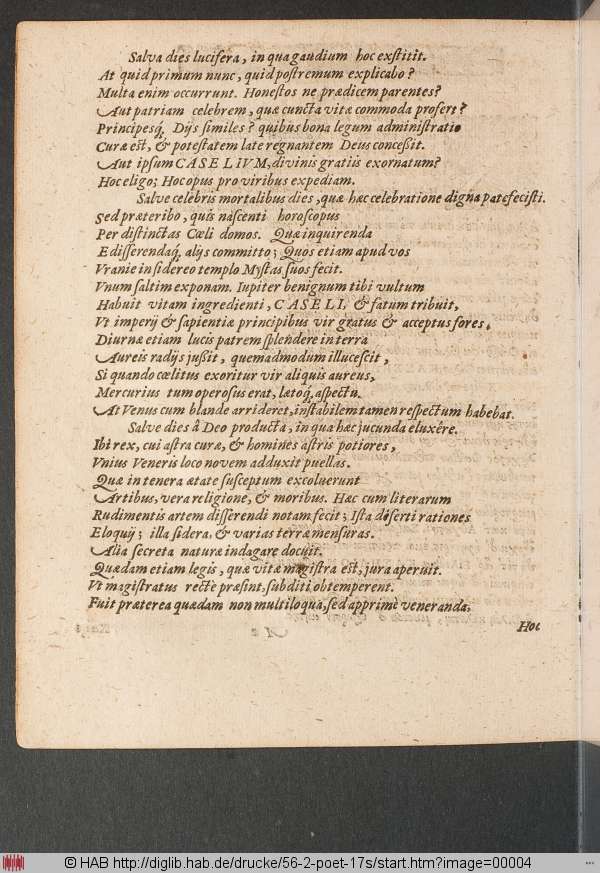 Salva dies lucifera, in qua gaudium hoc exstitit.
At quid primum nunc, quid postremum explicabo?
Multa enim occurrunt. Honestos ne prædicem parentes?
Aut patriam celebrem, quæ cuncta vitæ commoda profert?
Principesq; Dijs similes? quibus bona legum administratio
Curæ est, & potestatem late regnantem Deus concessit.
Aut ipsum CASELIVM, divinis gratiis exornatum?
Hoc eligo; Hoc opus pro viribus expediam.
Salve celebris mortalibus dies, quæ hæc celebratione digna patefecisti.
Sed præteribo, quis nascenti horoscopus
Per distinctas Cœli domos. Quæ inquirenda
Edisserendaq; alijs committo; Quos etiam apud vos
Vranie in sidereo templo Mystas suos fecit.
Vnum saltim exponam. Iupiter benignum tibi vultum
Habuit vitam ingredienti, CASELI, & fatum tribuit,
Vt imperij & sapientiæ principibus vir gratus & acceptus fores.
Diurnæ etiam lucis patrem splendere in terra
Aureis radijs jussit, quemadmodum illucescit,
Si quando cœlitus exoritur vir aliquis aureus,
Mercurius tum operosus erat, lætoq; aspectu.
At Venus cum blande arrideret, instabilem tamen respectum habebat.
Salve dies â Deo producta, in qua hæc jucunda eluxêre.
Ibi rex, cui astra curæ, & homines astris potiores,
Vnius Veneris loco novem adduxit puellas.
Quæ in tenera ætate susceptum excoluerunt
Artibus, vera religione, & moribus. Hæc cum literarum
Rudimentis artem disserendi notam fecit; Ista diserti rationes
Eloquij; illa sidera, & varias terræ mensuras.
Alia secreta naturæ indagare docuit.
Quædam etiam legis, quæ vitæ magistra est, jura aperuit.
Vt magistratus rectè præsint, subditi obtemperent.
Fuit præterea quædam non multiloqua, sed apprimè veneranda,
Hoc
© HAB http://diglib.hab.de/drucke/56-2-poet-17s/start.htm?image=00004